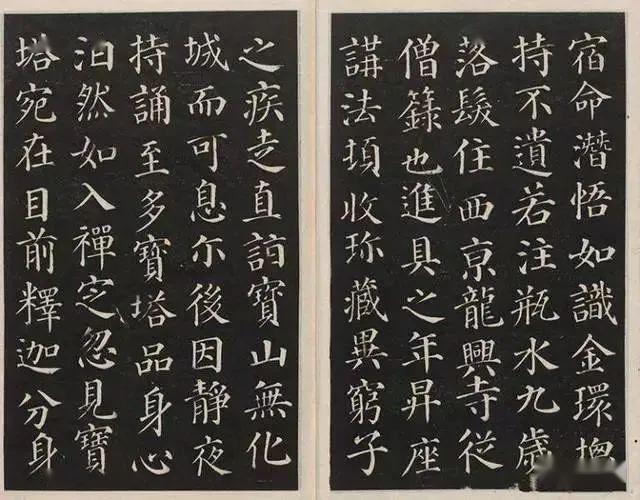 宿命潛悟如識金環揔
持不遺若注瓶水九歲
落髮住西京龍興寺從
僧籙也進具之年昇座
講法頓收珎藏異窮子
之疾走直詣寶山無化
城而可息尔後因靜夜
持誦至多寶塔品身心
泊然如入禪定忽見寶
塔宛在目前釋迦分身